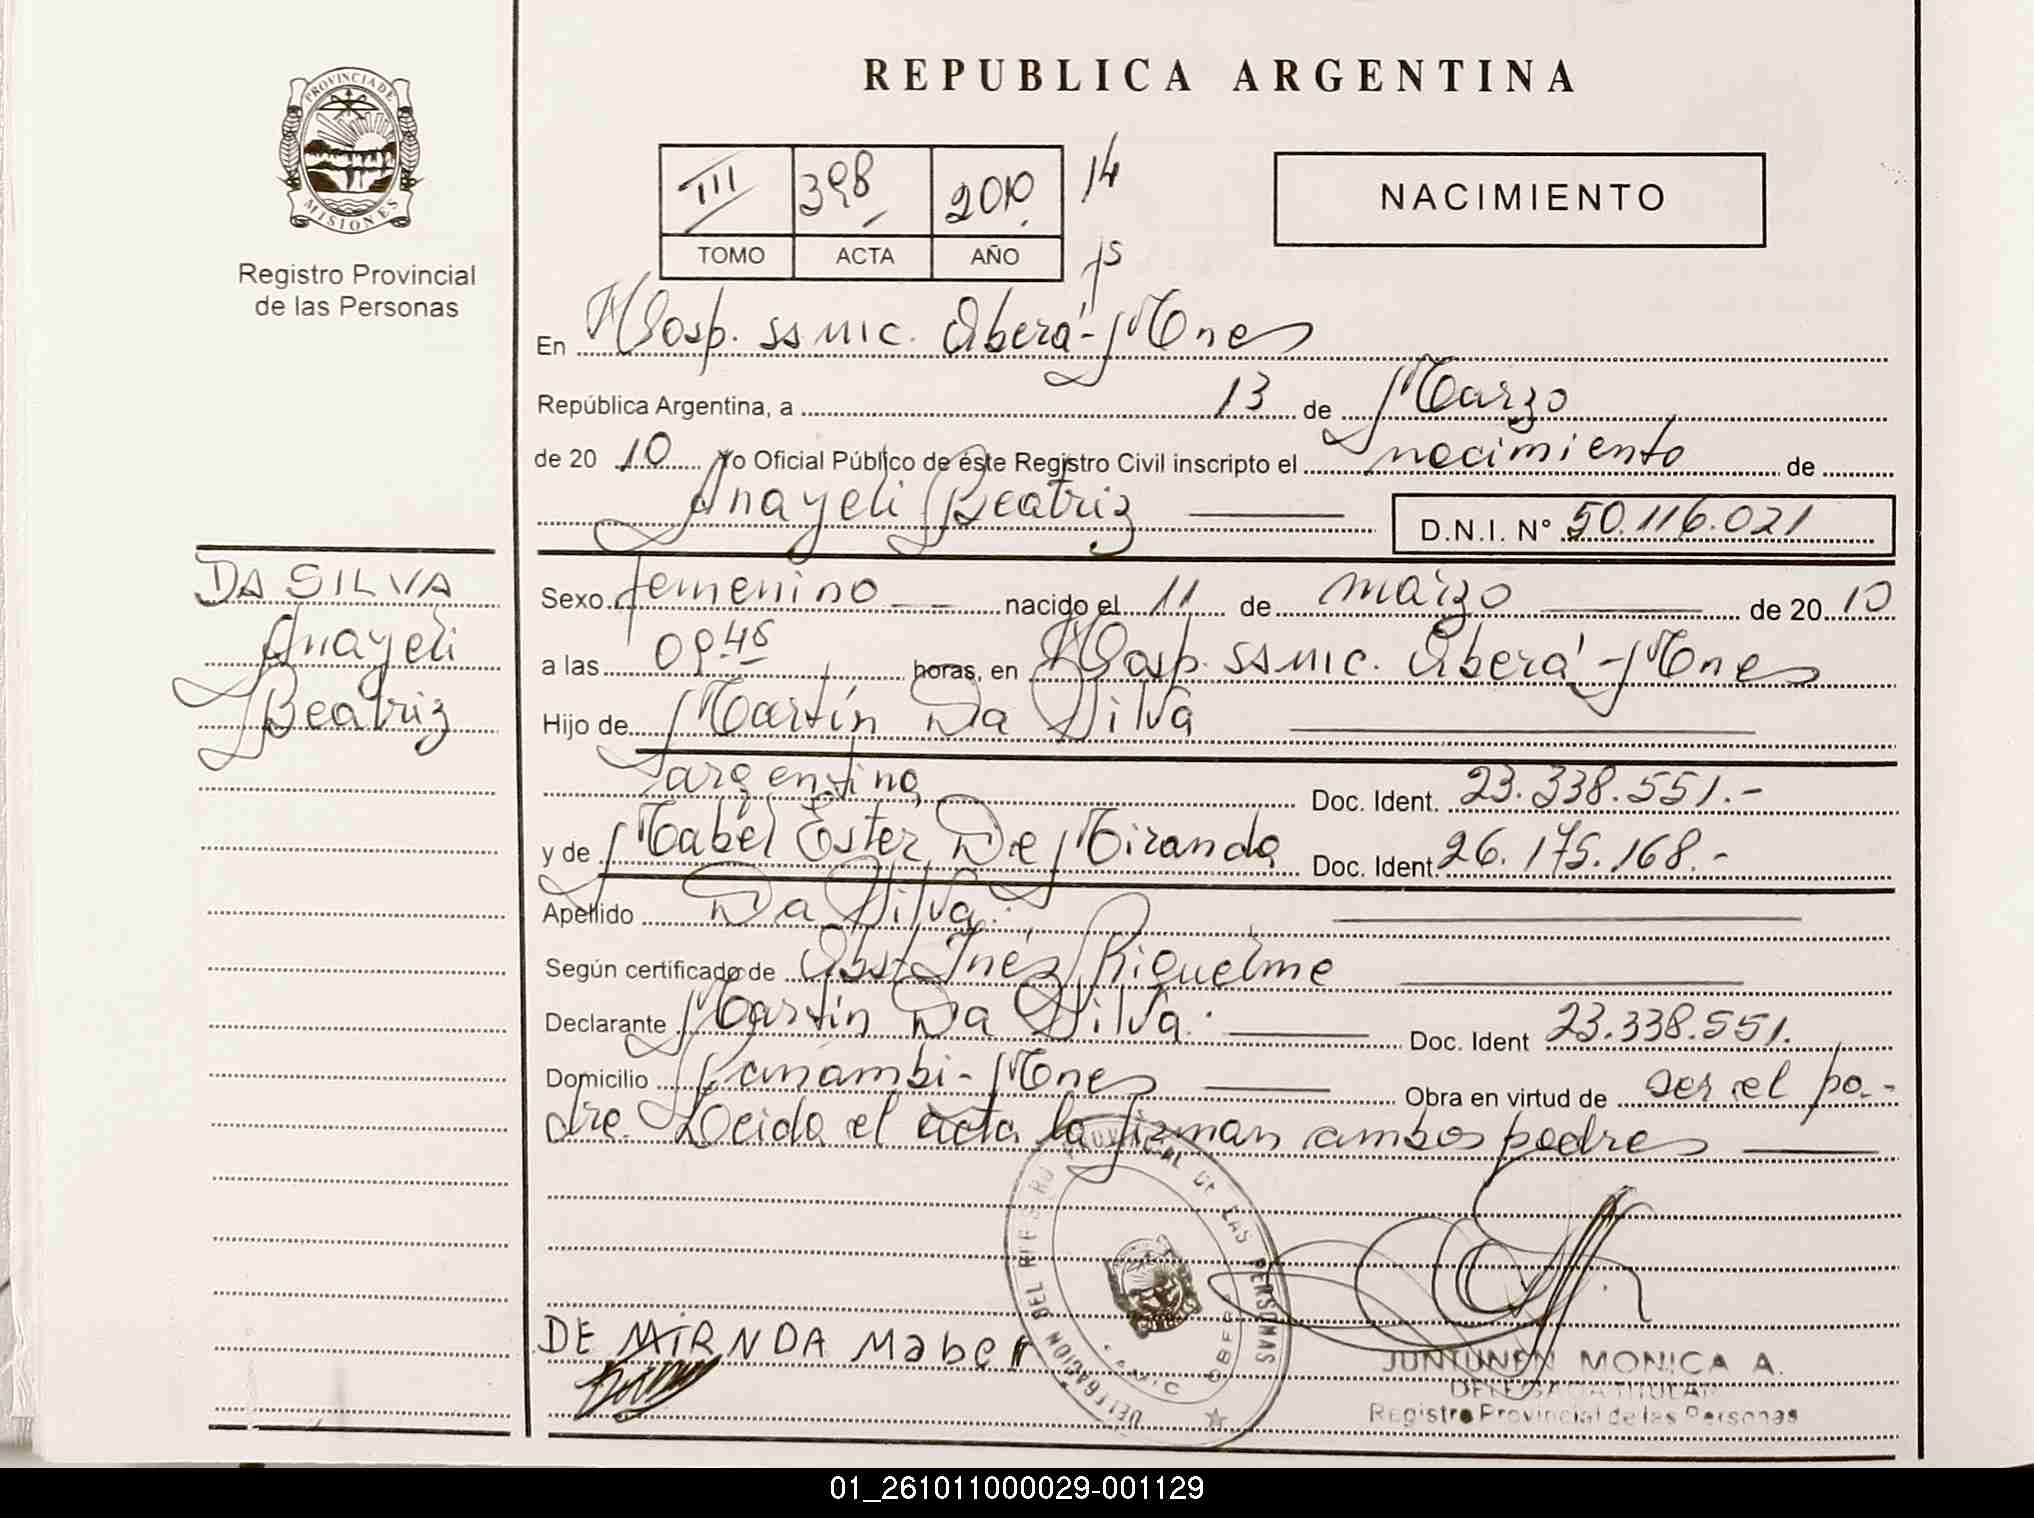 REPUBLICA ARGENTINA
PROVINCIA DE
MISIONES
Registro Provincial
de las Personas
III 398 2010 14
TOMO ACTA AÑO 15
NACIMIENTO
En Hosp. SSMIC. Oberá - Mnes
República Argentina, a 13 de Marzo
de 20 10 Yo Oficial Público de este Registro Civil inscripto el nacimiento de
Anayeli Beatriz D.N.I. N° 50.116.021
DA SILVA
Anayeli
Beatriz
Sexo femenino nacido el 11 de marzo de 20 10
a las 09.45 horas, en Hosp. SSMIC. Oberá - Mnes
Hijo de Martín Da Silva
argentino Doc. Ident. 23.338.551.-
y de Mabel Ester De Miranda Doc. Ident. 26.175.168.-
Apellido Da Silva.
Según certificado de Obst. Inés Riquelme
Declarante Martín Da Silva. Doc. Ident 23.338.551.
Domicilio Panambi - Mnes Obra en virtud de ser el pa-
dre. Leida el acta la firman ambos padres
DELEGACION DEL REGISTRO PROVINCIAL DE LAS PERSONAS
OBERA
DE MIRNDA Mabel
JUNTUNEN MONICA A.
DELEGADA TITULAR
Registro Provincial de las Personas
01_261011000029-001129